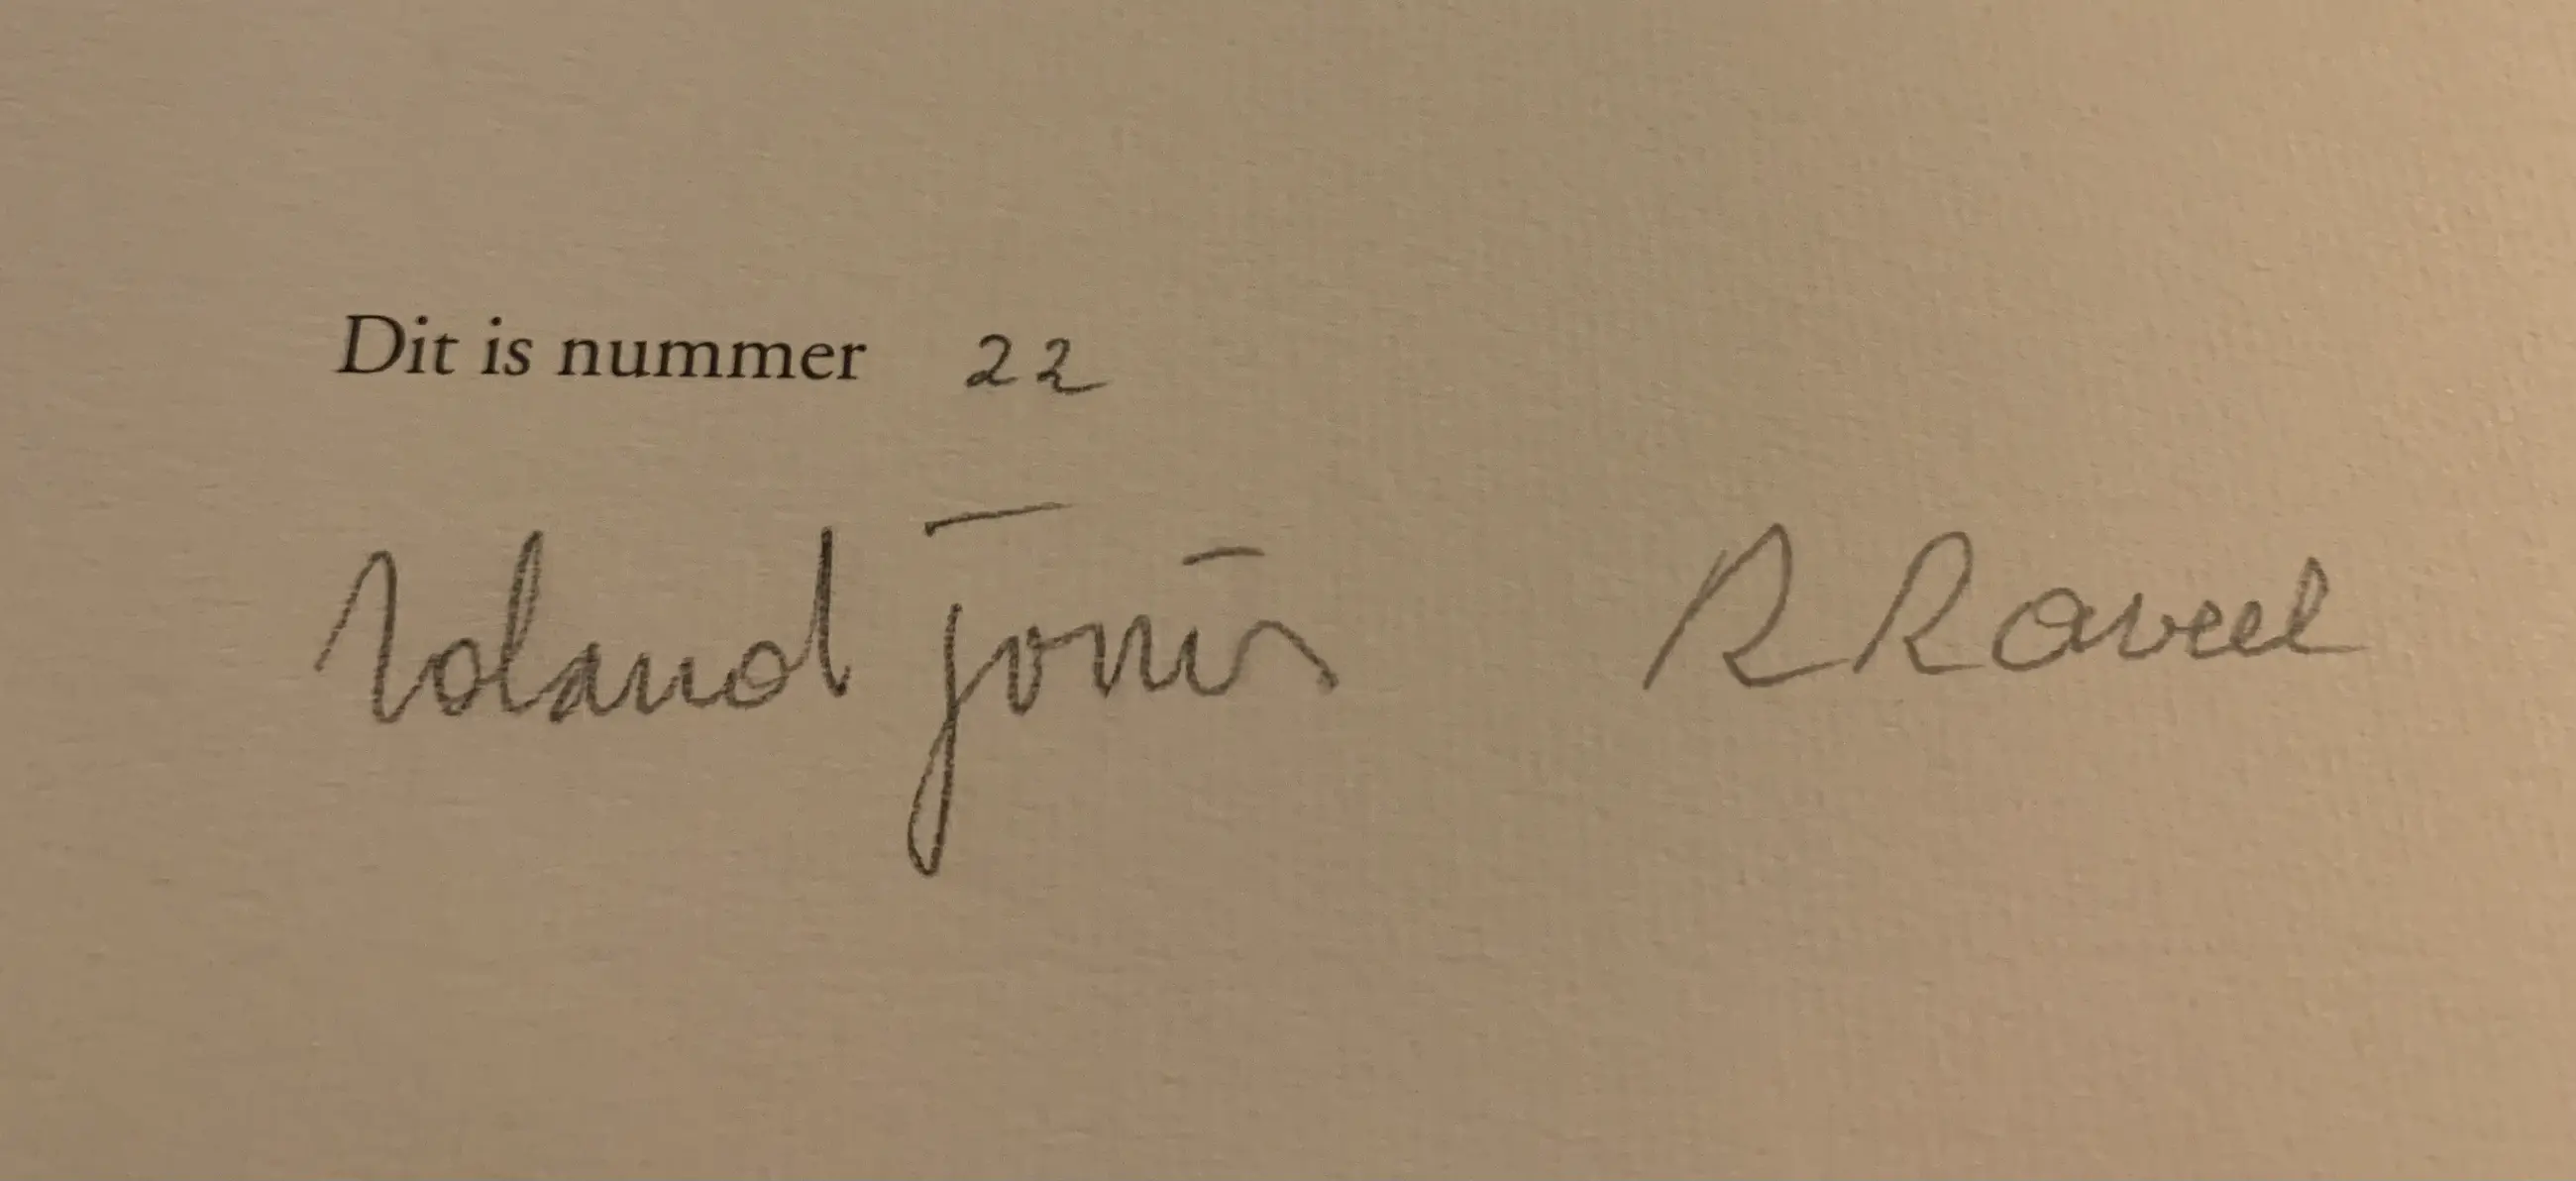 Dit is nummer 22
Roland Jooris R Raveel